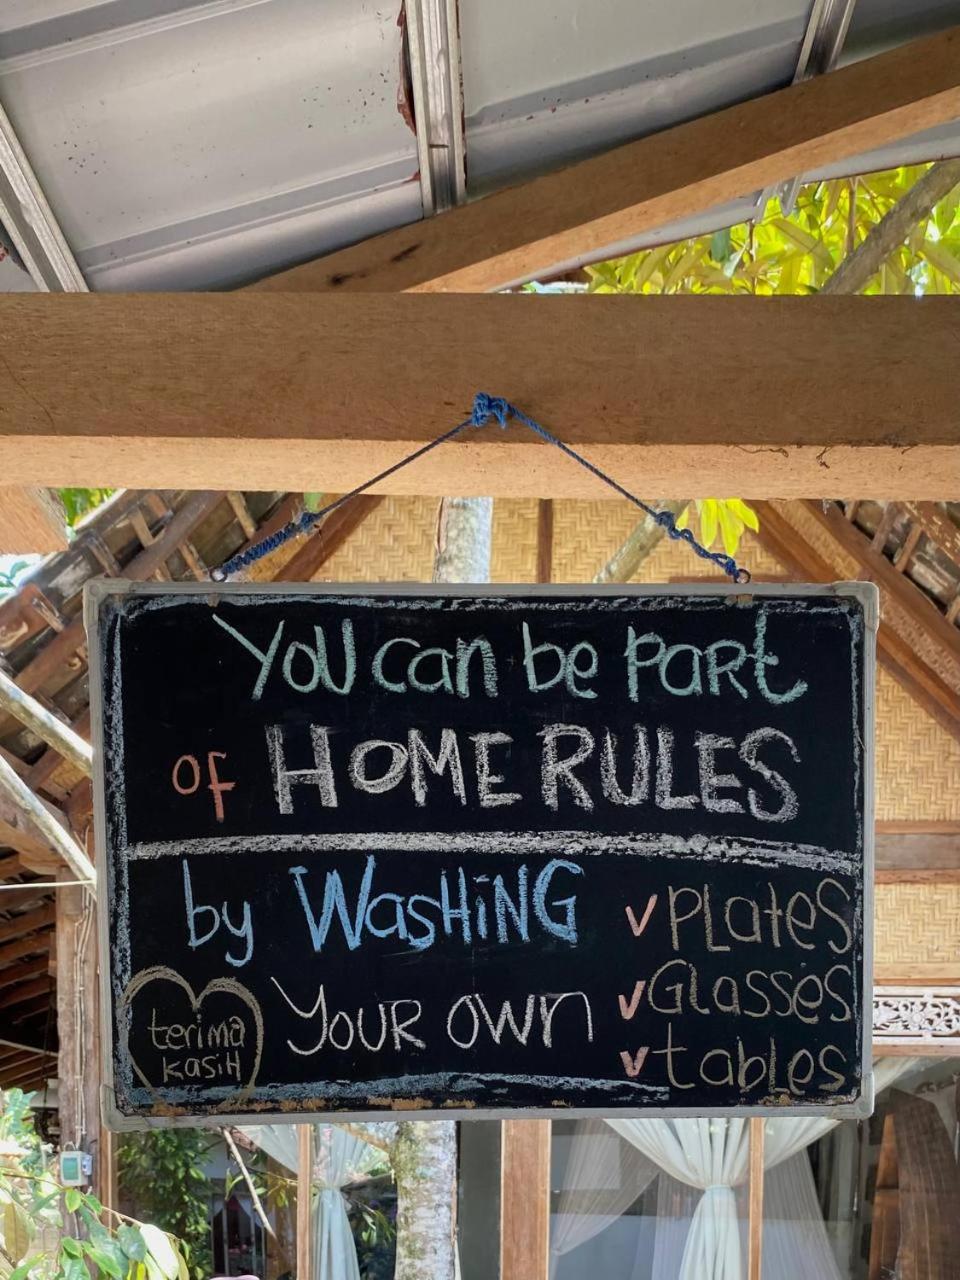 You can be part
of HOME RULES
by WasHiNG
YOUR own
✓ PLateS
✓ GLasses
✓ tables
terima
kasiH